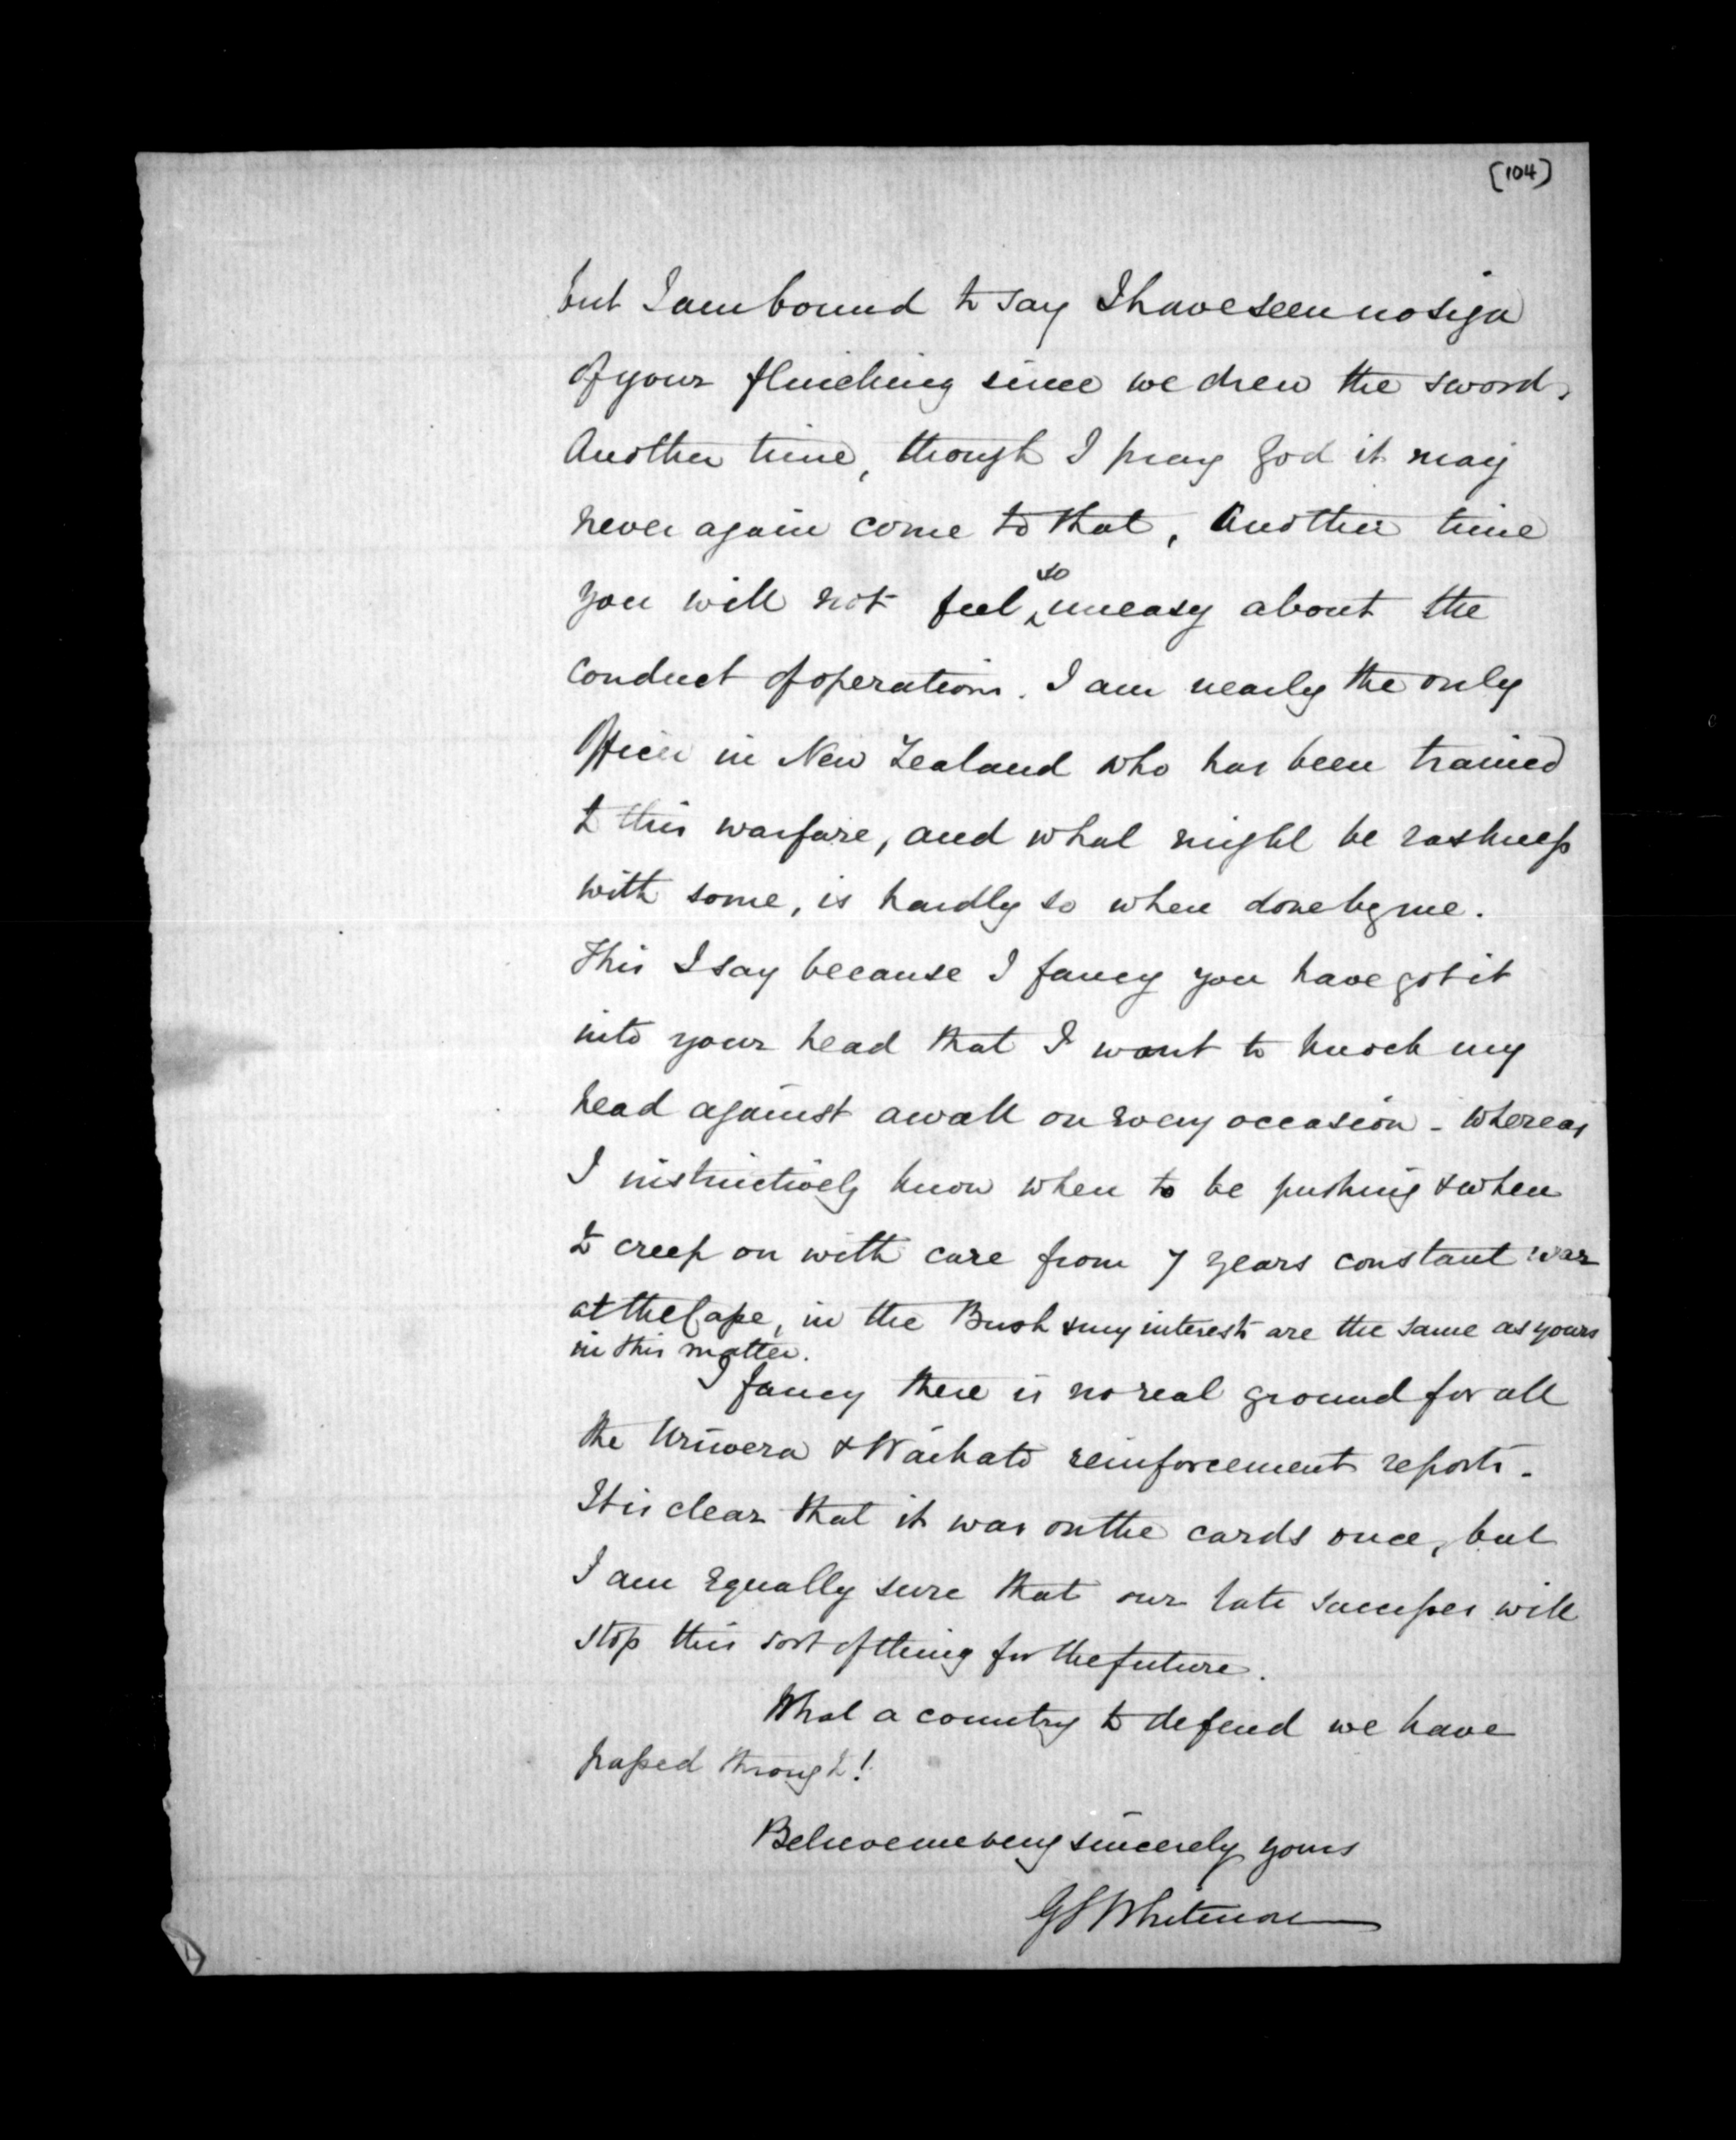 [104]
but I am bound to say I have seen no sign
of your flinching since we drew the sword,
Another time, though I pray God it may
never again come to that, Another time
you will not feel so uneasy about the
conduct of operations. I am nearly the only
Officer in New Zealand who has been trained
to this warfare, and what might be rashness
with some, is hardly so when done by me.
This I say because I fancy you have got it
into your head that I want to knock my
head against a wall on every occasion - whereas
I instinctively know when to be pushing & when
to creep on with care from 7 years constant war
at the Cape, in the Bush & my interests are the same as yours
in this matter.
I fancy there is no real ground for all
the Uriwera & Waikato reinforcement reports -
It is clear that it was on the cards once, but
I am equally sure that our late successes will
stop this sort of thing for the future.
What a country to defend we have
passed through!
Believe me very sincerely yours
G S Whitmore